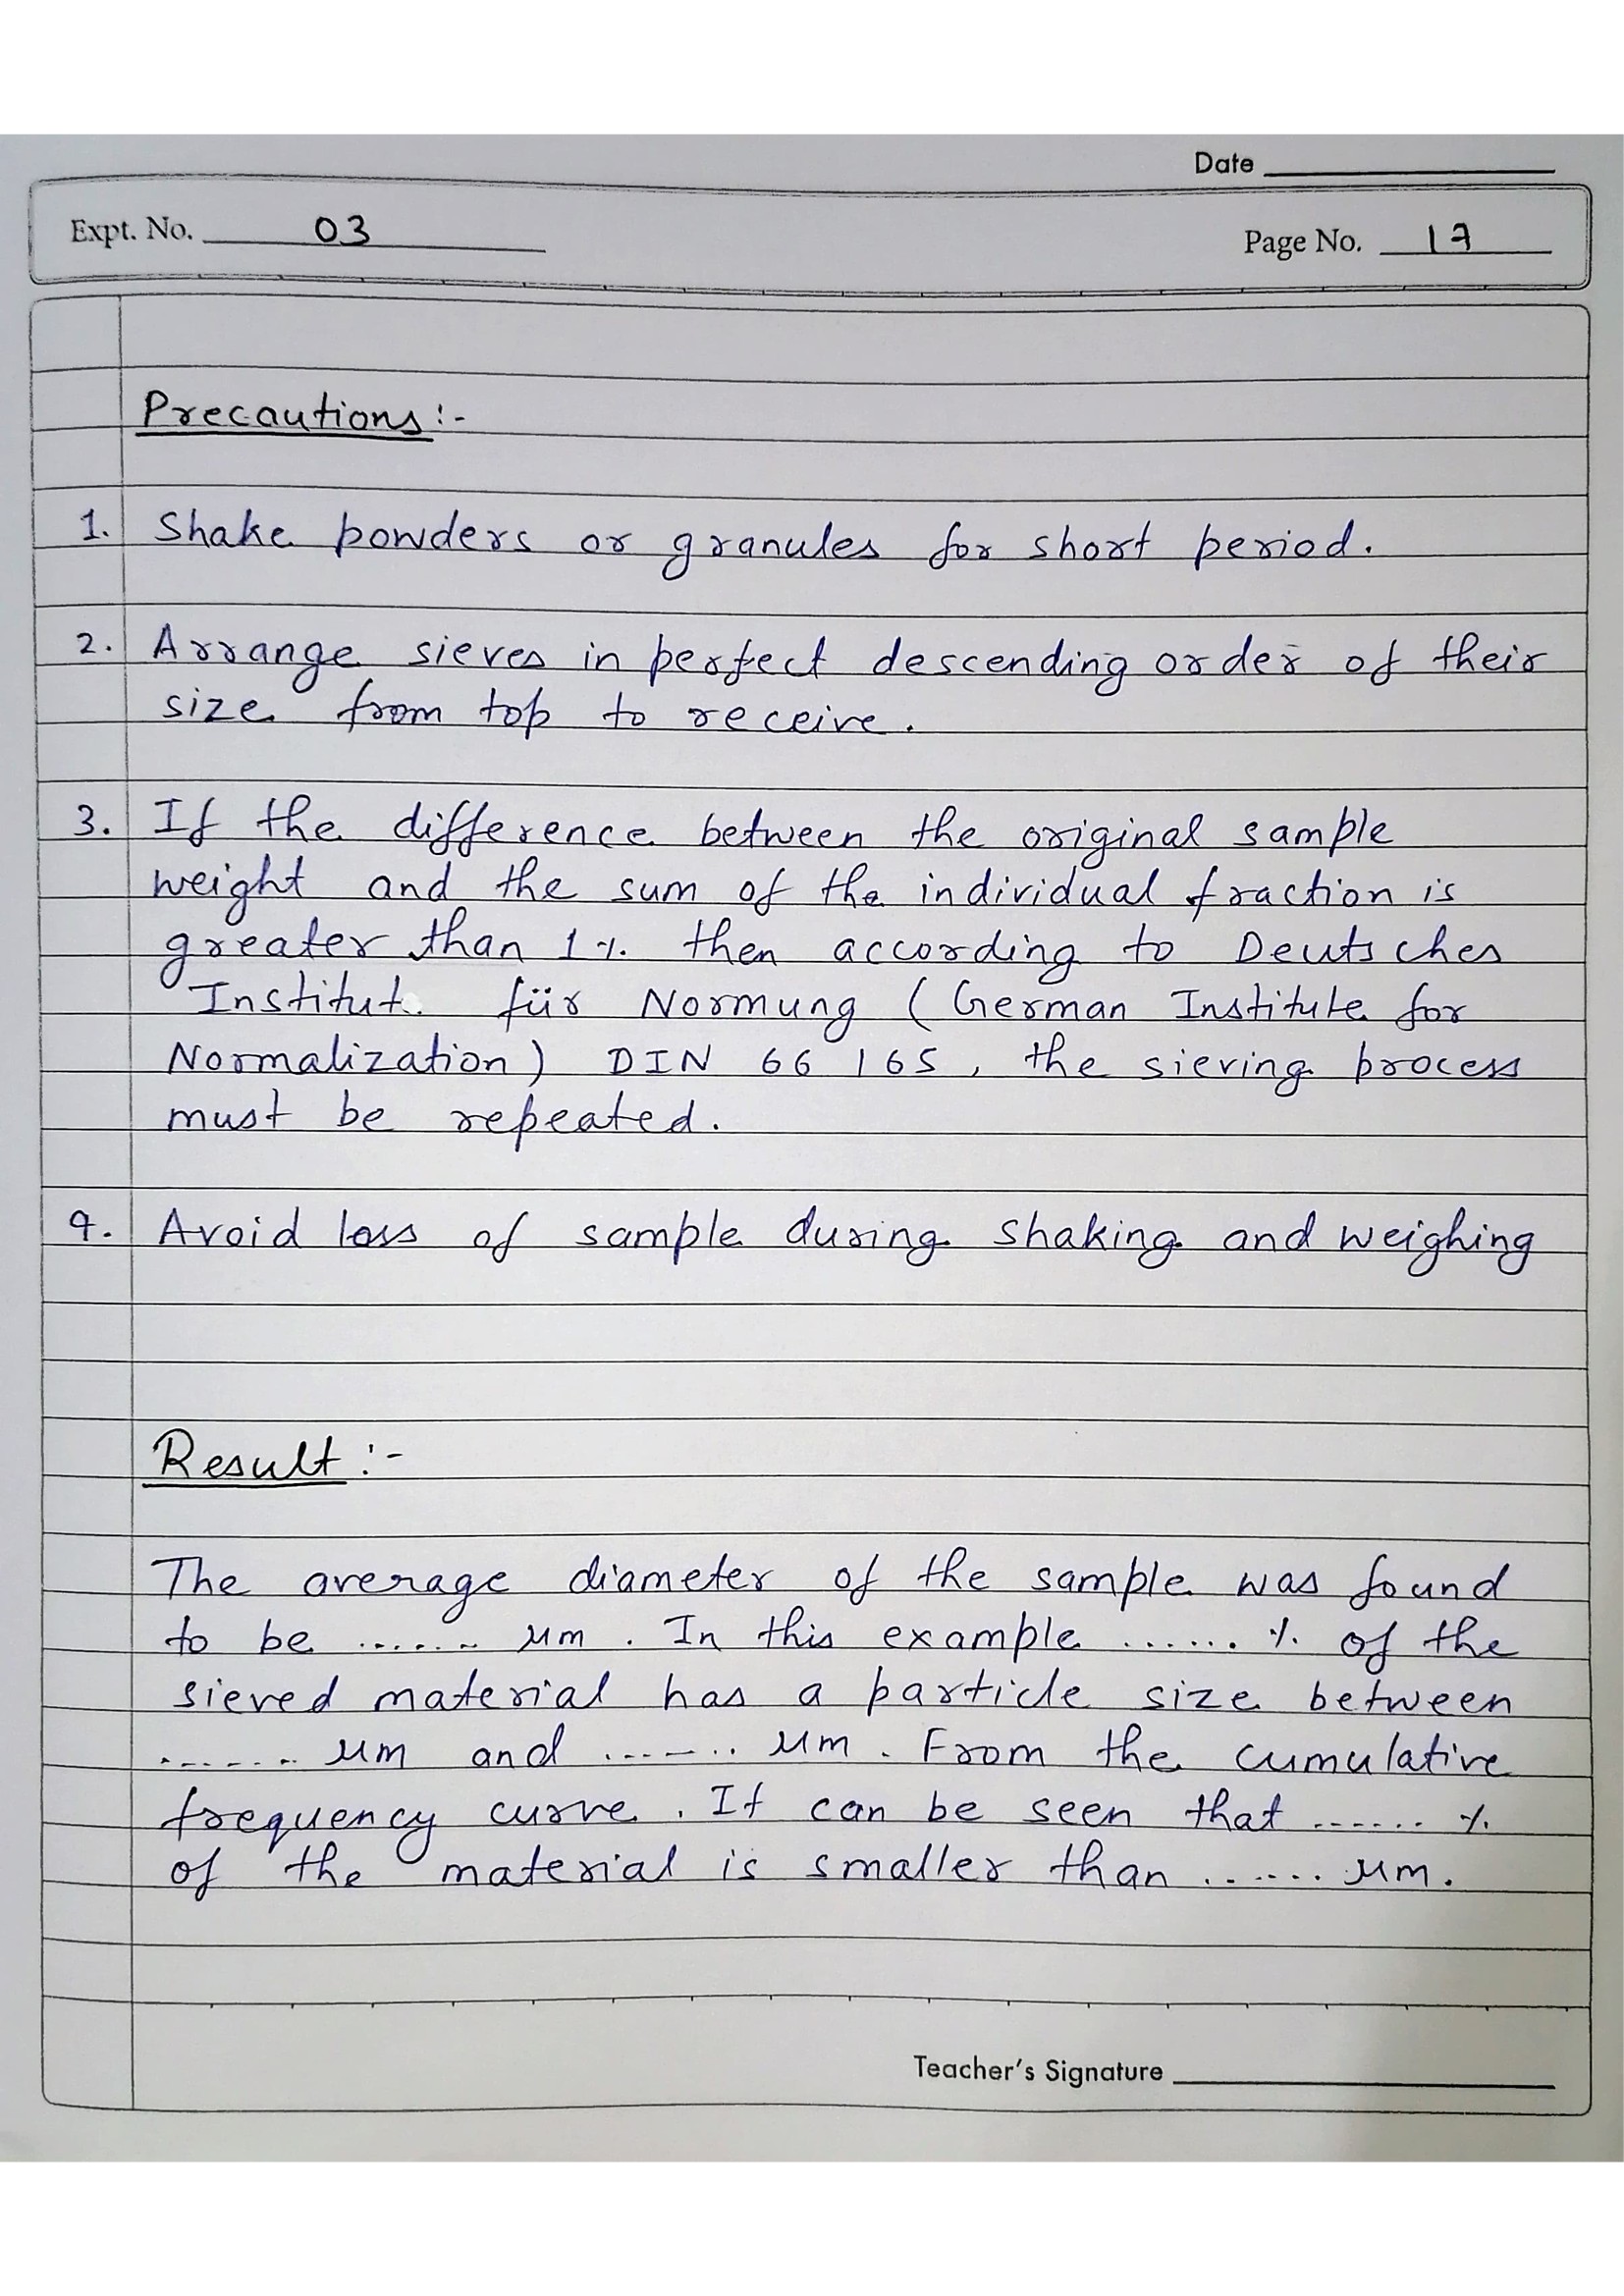 Date
Expt. No. 03
Page No. 17
Precautions:-
1. Shake powders or granules for short period.
2. Arrange sieves in perfect descending order of their
size from top to receive.
3. If the difference between the original sample
weight and the sum of the individual fraction is
greater than 1% then according to Deutsches
Institut für Normung (German Institute for
Normalization) DIN 66 165, the sieving process
must be repeated.
4. Avoid loss of sample during shaking and weighing
Result:-
The average diameter of the sample was found
to be ....... µm. In this example ....... % of the
sieved material has a particle size between
....... µm and ....... µm. From the cumulative
frequency curve. It can be seen that ...... %
of the material is smaller than ...... µm.
Teacher's Signature